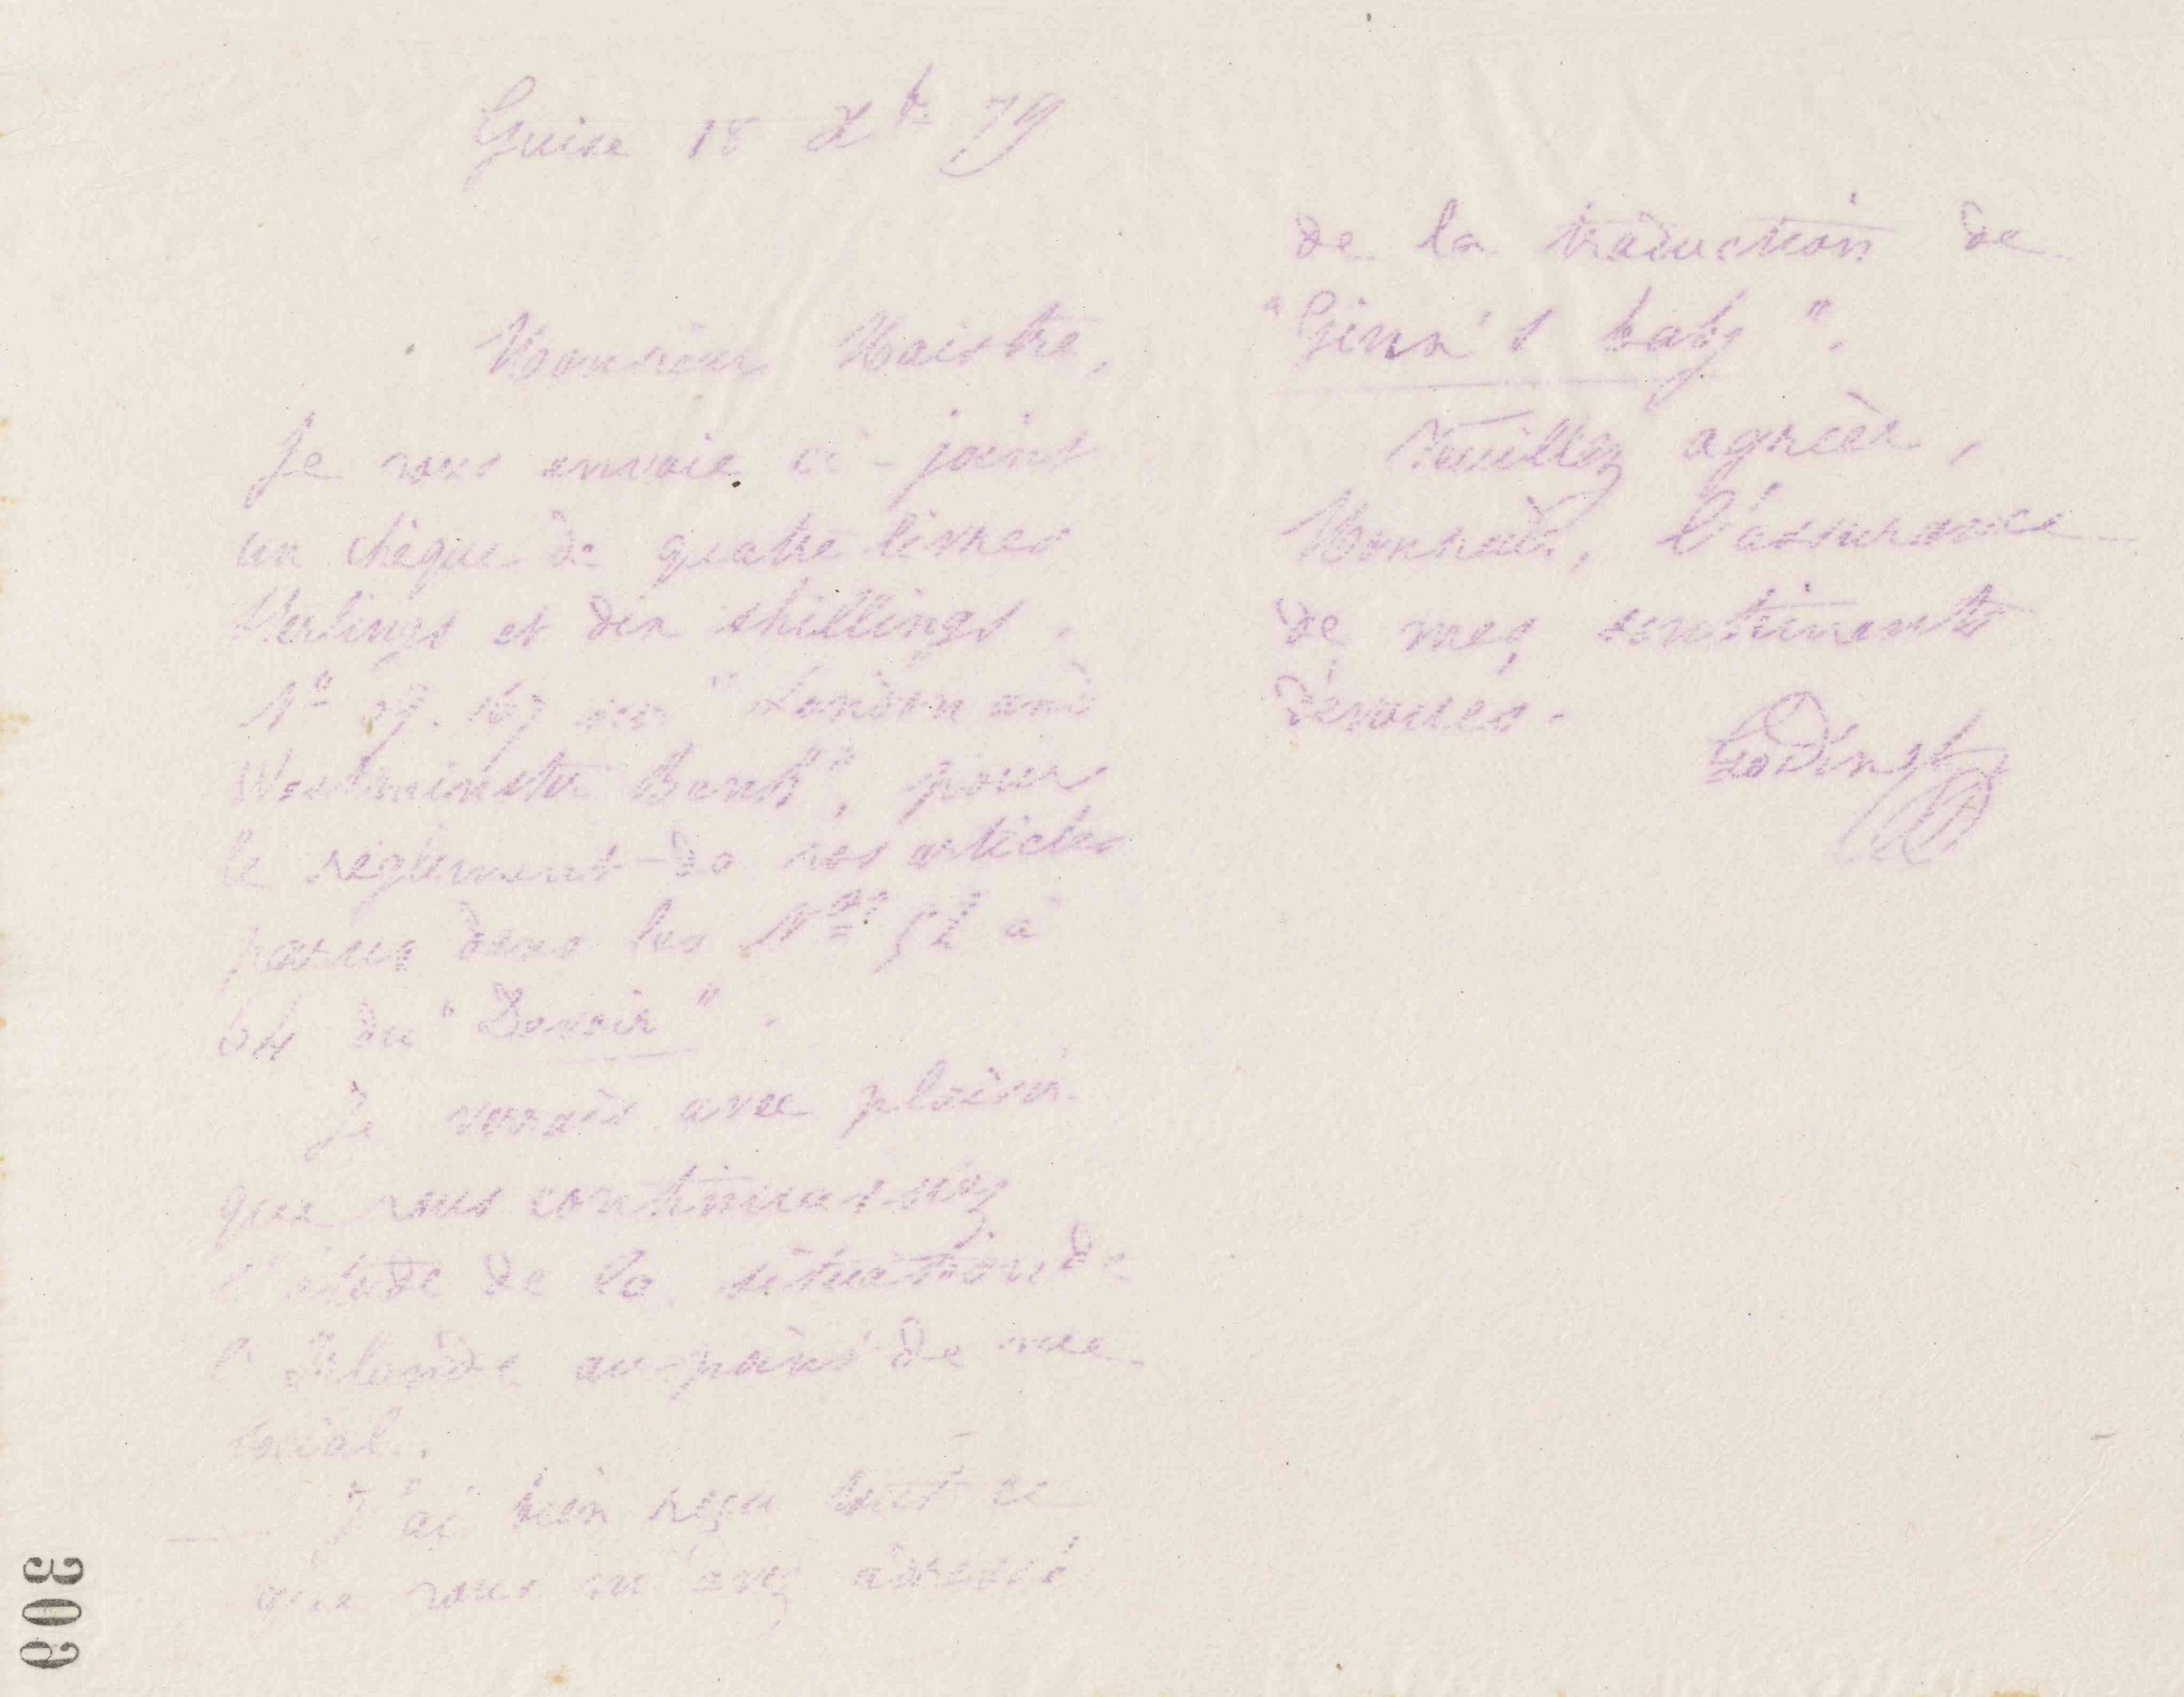 Guise 18 Xbre 79
Monsieur Maistre,
Je vous envoie ci-joint
un chèque de quatre livres
sterlings et dix shillings.
No 167 sur "London and
Westminster Bank", pour
le règlement de vos articles
parus dans les Nos 52 à
64 du "Devoir".
Je verrais avec plaisir
que vous continuassiez
l'étude de la situation de
l'Irlande au point de vue
social.
J'ai bien reçu tout ce
que vous m'avez adressé
de la traduction de
"Ginx's baby".
Veuillez agréer,
Monsieur, l'assurance
de mes sentiments
dévoués.
Godin
309